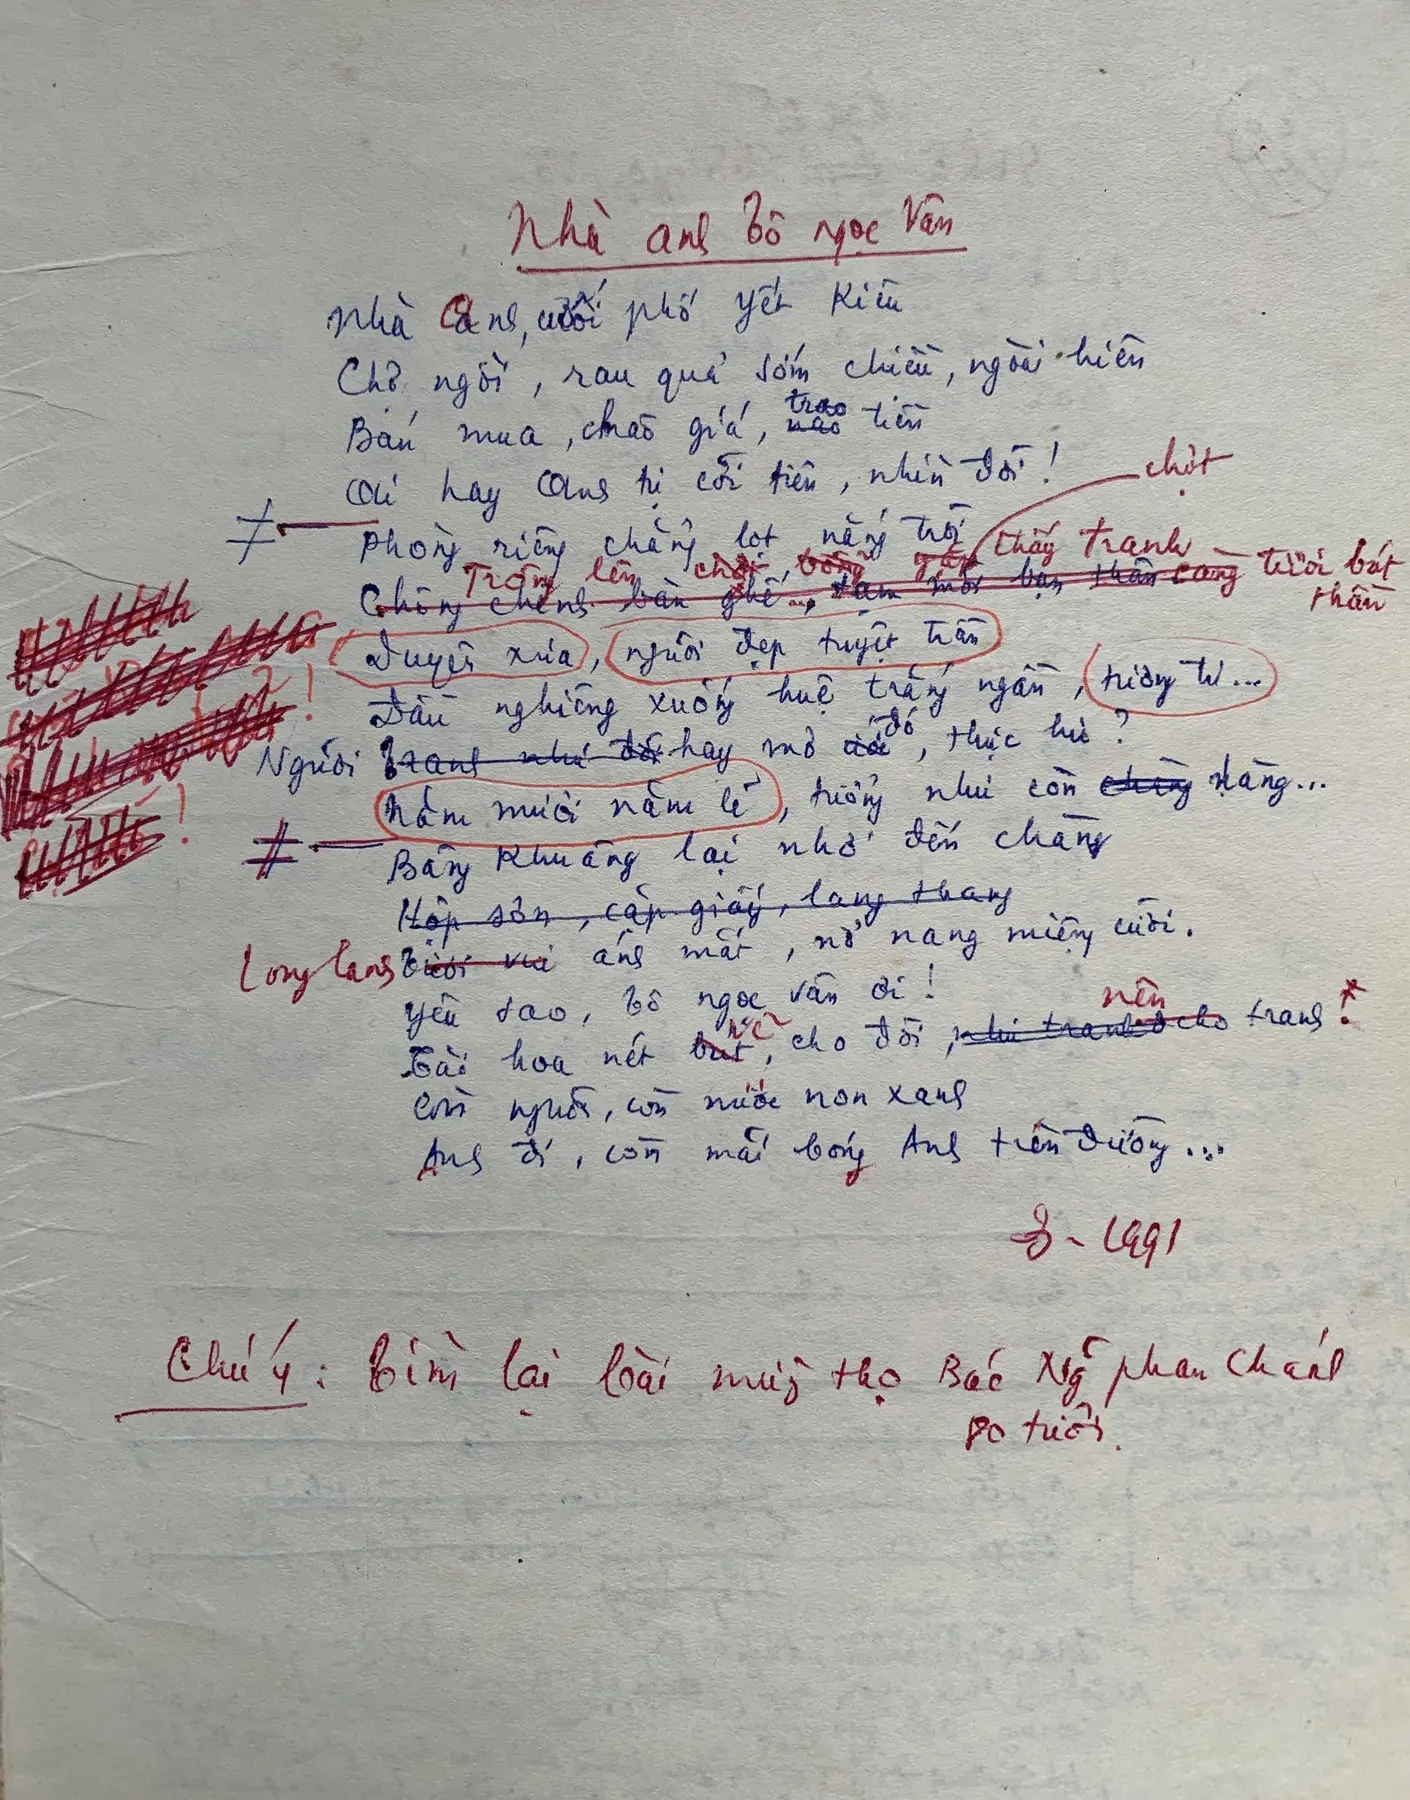 Nhà anh Tô Ngọc Vân
Nhà Anh, cuối phố Yết Kiêu
Chợ ngồi, rau quả sớm chiều, ngoài hiên
trao
Bán mua, chào giá, nào tiền
Ai hay Anh tị cõi tiên, nhìn đời!
chợt
Phòng riêng chẳng lọt nắng trời
Trông lên chợt bỗng gần thấy tranh
Chông chênh bàn ghế... dăm mời bạn thân càng tươi bát
thần
Duyên xưa, người đẹp tuyệt trần
Đầu nghiêng xuống huệ trắng ngần, tương tư...
đó
Người Tranh như đời hay mơ, thực hư?
Năm mươi năm lẻ, tưởng như còn chàng nàng...
Bâng khuâng lại nhớ đến chàng
Hộp sơn, cặp giấy, lang thang
Long lanh Tươi vui ánh mắt, nở nang miệng cười.
Yêu sao, Tô Ngọc Vân ơi!
nên
vẽ
Tài hoa nét bút, cho đời, như tranh cho tranh!
Còn người, còn nước non xanh
Anh đi, còn mãi bóng Anh trên đường...
8-1991
Chú ý: Tìm lại bài mừng thọ Bác Ng Phan Chánh
80 tuổi.